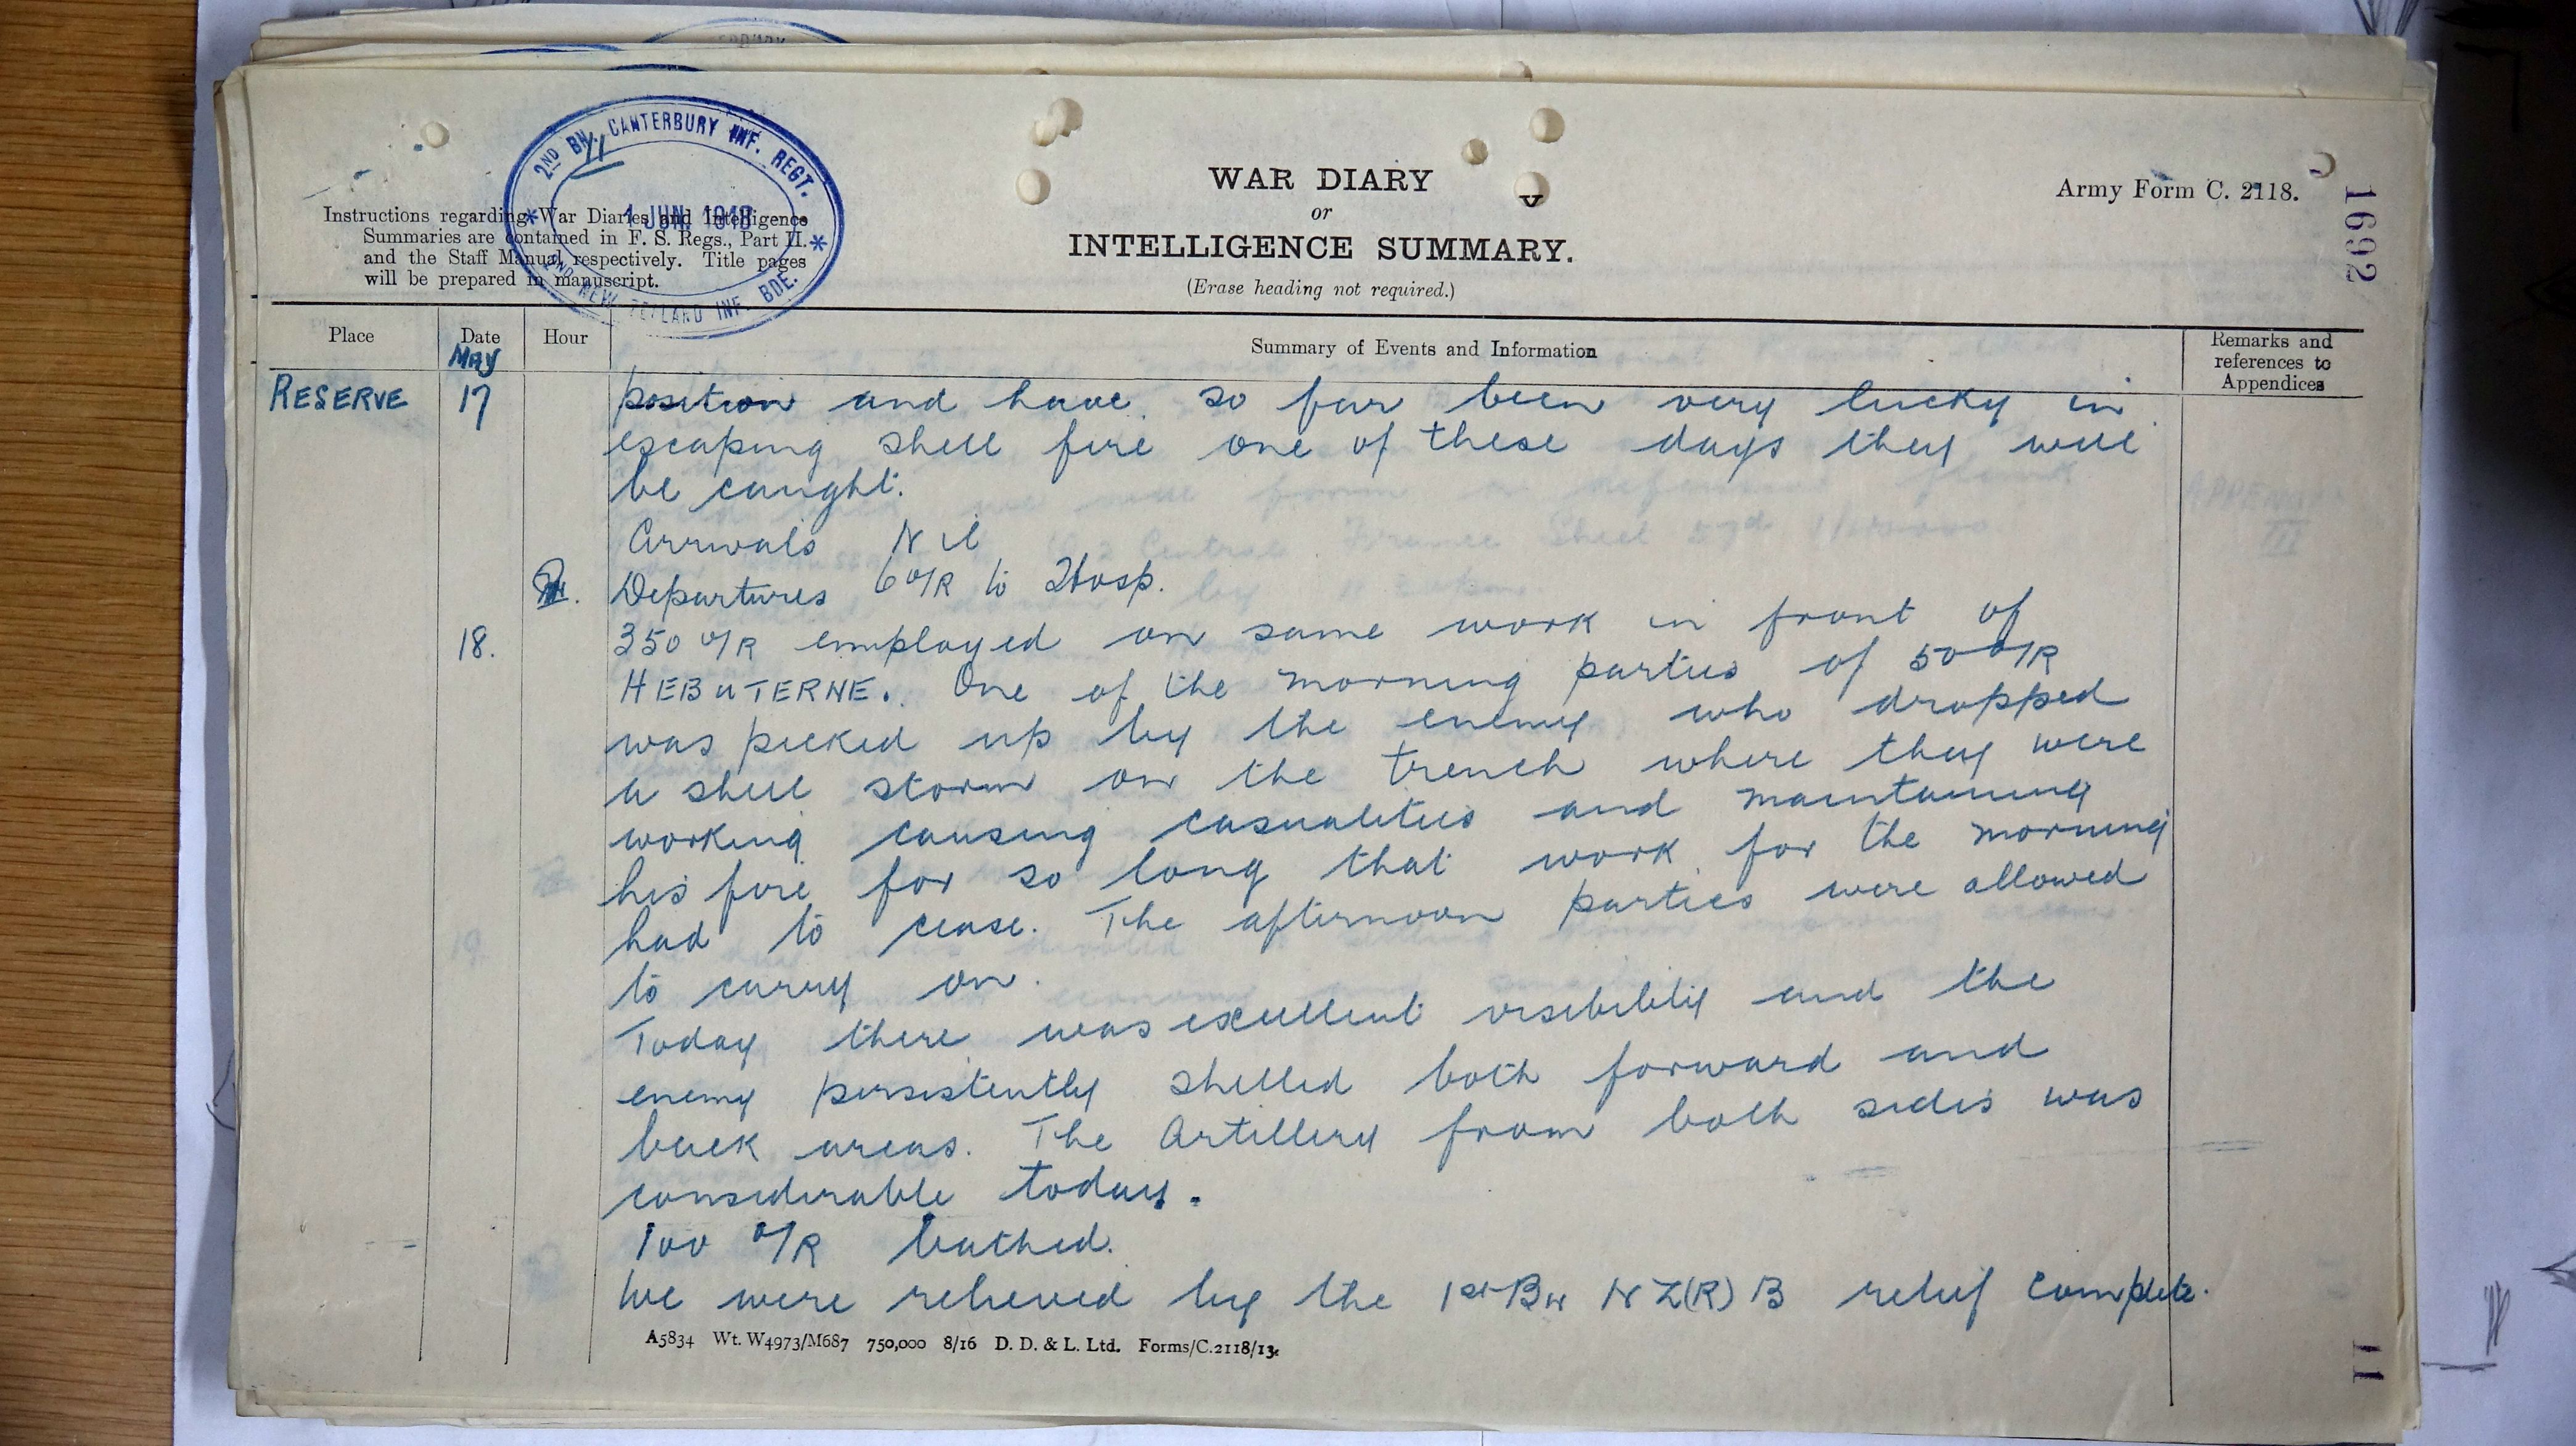 2ND BN. CANTERBURY INF. REGT.
11
1 JUN. 1918
2ND NEW ZEALAND INF. BDE.
Instructions regarding War Diaries and Intelligence
Summaries are contained in F. S. Regs., Part II.
and the Staff Manual respectively. Title pages
will be prepared in manuscript.
WAR DIARY
or
INTELLIGENCE SUMMARY.
(Erase heading not required.)
Army Form C. 2118.
1692
Place
Date
Hour
Summary of Events and Information
Remarks and
references to
Appendices
MAY
RESERVE 17 position and have so far been very lucky in
escaping shell fire one of these days they will
be caught.
Arrivals Nil
Departures 6 O/R to Hosp.
18. 350 O/R employed on same work in front of
HEBUTERNE. One of the morning parties of 50 O/R
was picked up by the enemy who dropped
a shell storm on the trench where they were
working causing casualities and maintaining
his fire for so long that work for the morning
had to cease. The afternoon parties were allowed
to carry on.
Today there was excellent visibility and the
enemy persistently shelled both forward and
back areas. The Artillery from both sides was
considerable today.
100 O/R bathed.
We were relieved by the 1st Bn N Z (R) B relief complete.
A5834 Wt. W4973/M687 750,000 8/16 D. D. & L. Ltd. Forms/C.2118/13.
11